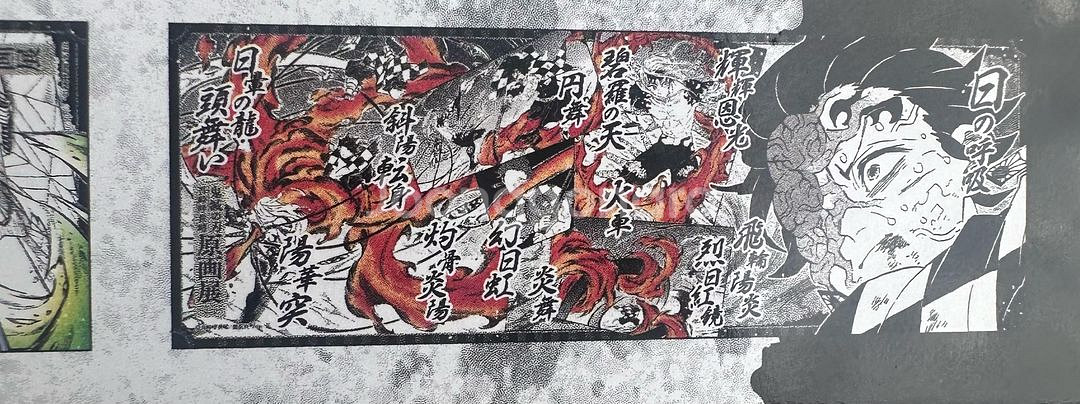 日の呼吸
輝輝恩光
飛輪陽炎
碧羅の天
火車
烈日紅鏡
円舞
幻日虹
炎舞
斜陽転身
灼骨炎陽
日暈の龍
頭舞い
陽華突
原画展